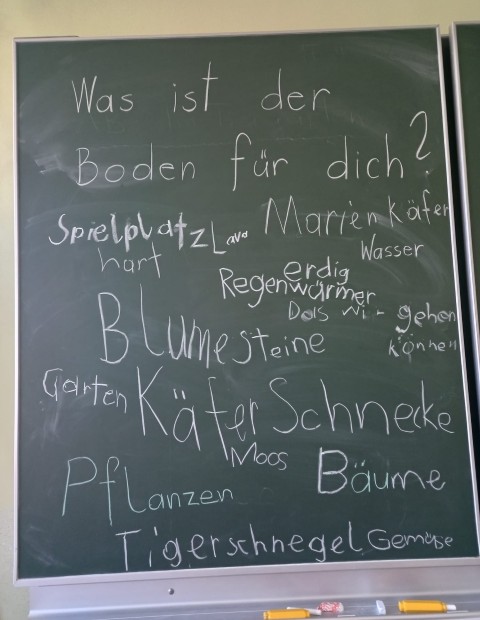 Was ist der
Boden für dich?
Spielplatz Lava Marienkäfer
hart Wasser
erdig
Regenwürmer
Das wi- gehen
können
Blume Steine
Garten Käfer Schnecke
Moos
Pflanzen Bäume
Tigerschnegel Gemüse